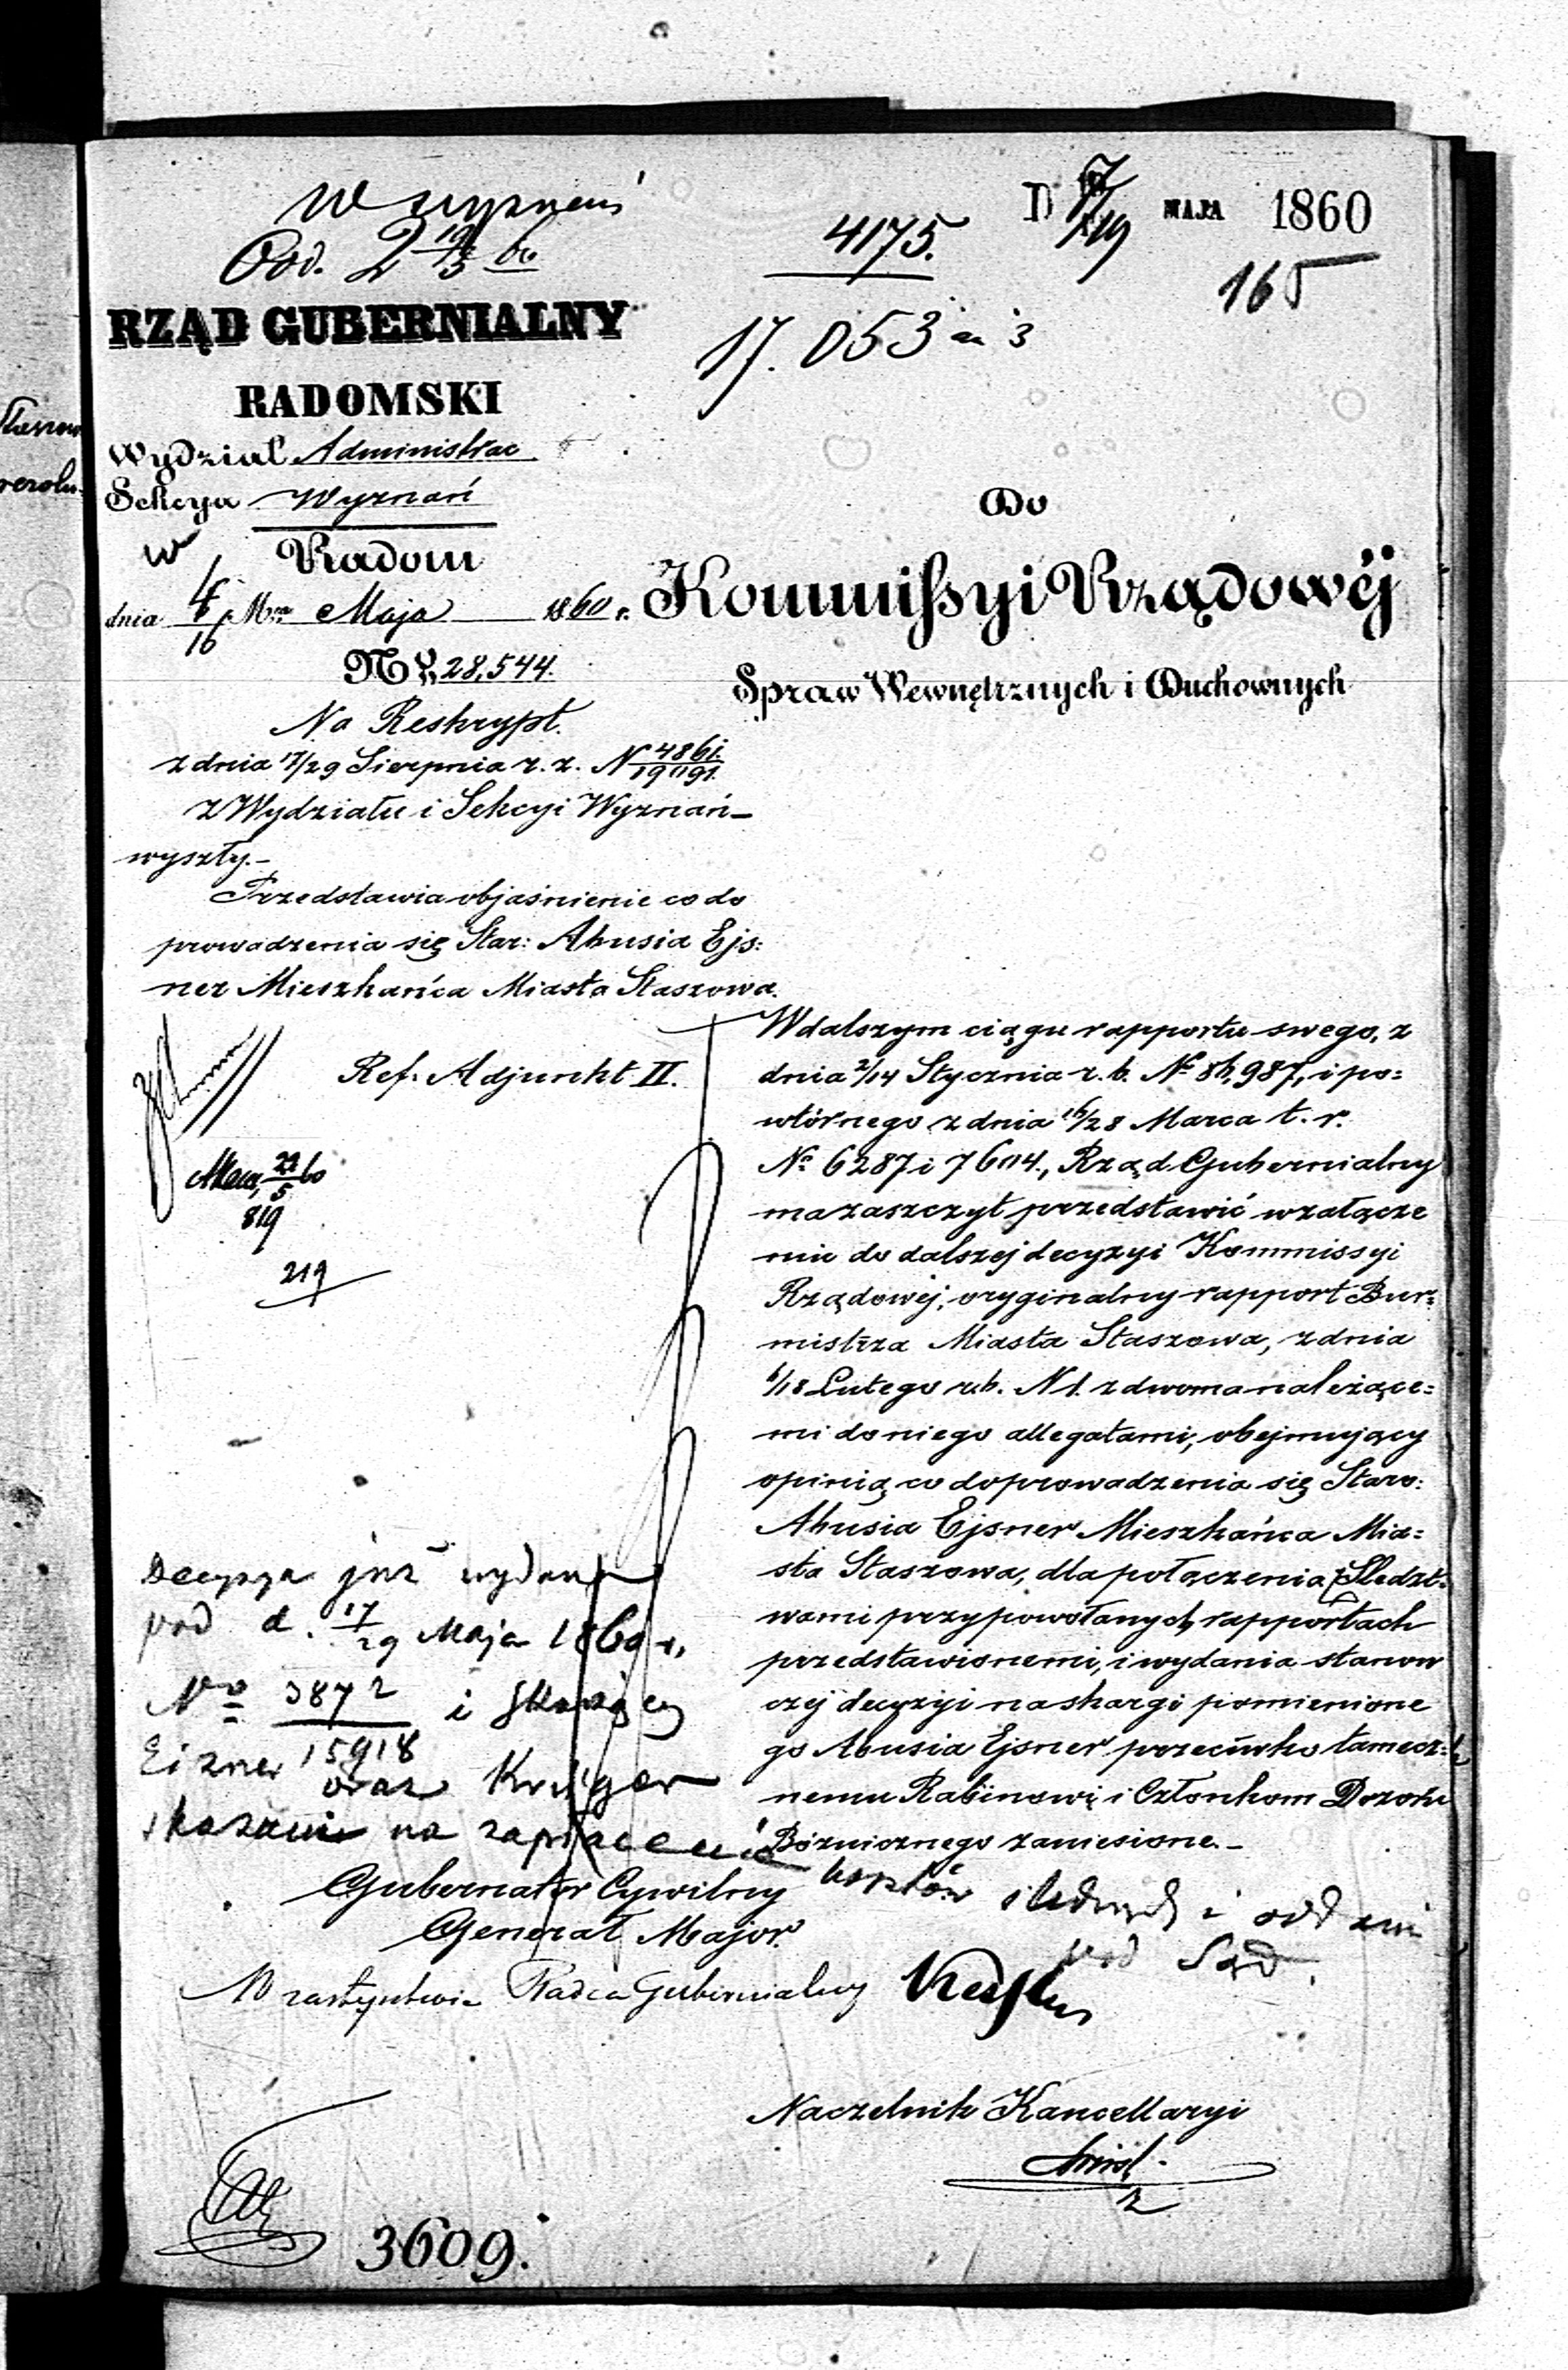 W wyznań
Odd. 2 19/5 60
4175.
D 7/19 MAJA 1860
165
17.053
RZĄD GUBERNIALNY
RADOMSKI
Wydział Administrac
Sekcya Wyznań
w Radom
dnia 4/16 Maja 1860 r.
No 28,544.
Do
Kommissyi Rządowéj
Spraw Wewnętrznych i Duchownych
Na Reskrypt.
z dnia 17/29 Sierpnia r. z. N 4861/19091.
z Wydziału i Sekcyi Wyznań
wyszły.-
Przedstawia objaśnienie co do
prowadzenia się Star: Abusia Ejs:
ner Mieszkańca Miasta Staszowa.
Ref. Adjunkt II.
5 60
819
219
W dalszym ciągu rapportu swego, z
dnia 2/14 Stycznia r. b. No 86,987, i po:
wtórnego z dnia 16/28 Marca t. r.
No 6287 i 7604., Rząd Gubernialny
ma zaszczyt przedstawić w załącze
niu do dalszej decyzyi Kommissyi
Rządowéj, oryginalny rapport Bur:
mistrza Miasta Staszowa, z dnia
6/18 Lutego r.b. N 1. z dwoma należące:
mi do niego allegatami, obejmujący
opinią co do prowadzenia się Staro:
Abusia Ejsner Mieszkańca Mia:
sta Staszowa, dla połączenia z Śledzt:
wami przy powołanych rapportach
przedstawionemi, i wydania stanow
czéj decyzyi na skargi pomienione
go Abusia Ejsner przeciwko tamecz:
nemu Rabinowi i Członkom Dozoru
Bóżnicznego zaniesione.-
Decyzya już wydana
pod d. 17/29 Maja 1860 r.
No 3872/15918 i skarżący
Eizner oraz Kryger
skazani na zapłacenie
kosztów śledczych i oddani
pod Sąd.
Gubernator Cywilny
Generał Major.
W zastępstwie Radca Gubernialny
Naczelnik Kancellaryi
3609.